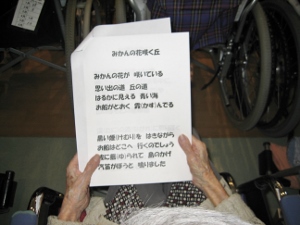 みかんの花咲く丘
みかんの花が 咲いている
思い出の道 丘の道
はるかに見える 青い海
お船がとおく 霞(かす)んでる
黒い煙(けむり)を はきながら
お船はどこへ 行くのでしょう
波に揺(ゆ)られて 島のかげ
汽笛がぼうと 鳴りました